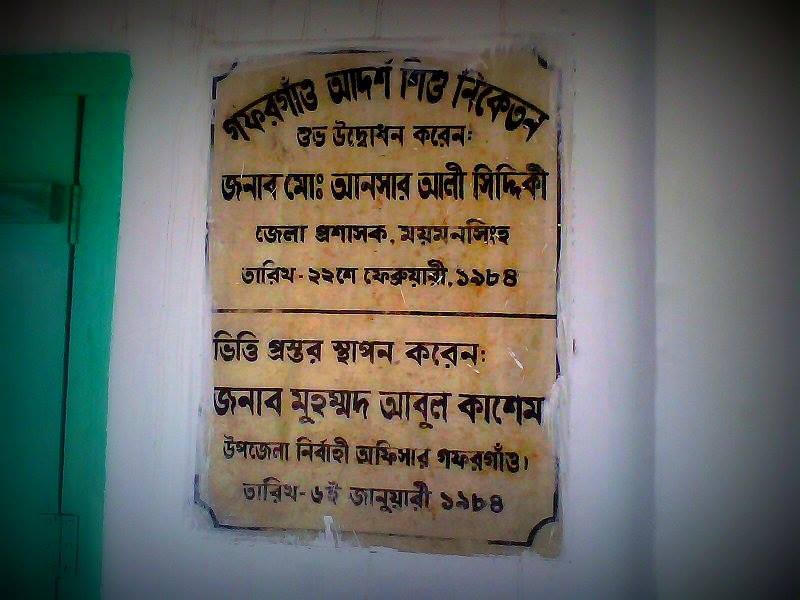 গফরগাঁও আদর্শ শিশু নিকেতন
শুভ উদ্বোধন করেন:
জনাব মোঃ আনসার আলী সিদ্দিকী
জেলা প্রশাসক, ময়মনসিংহ
তারিখ - ২২শে ফেব্রুয়ারী, ১৯৮৪
ভিত্তি প্রস্তর স্থাপন করেন:
জনাব মুহম্মদ আবুল কাশেম
উপজেলা নির্বাহী অফিসার গফরগাঁও।
তারিখ - ৬ই জানুয়ারী ১৯৮৪